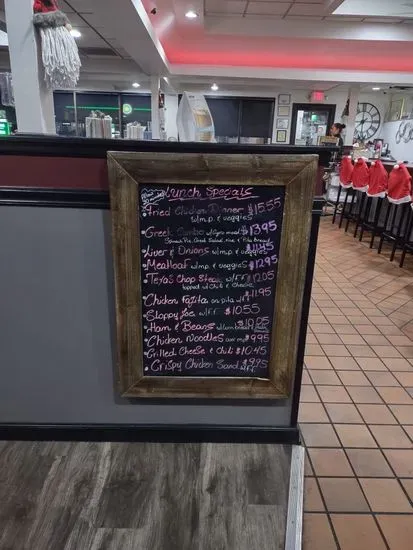 Lunch Specials
Fried Chicken Dinner $15.55
w/m.p. & veggies
Greek Combo w/Gyro meat $13.95
Spinach Pie, Greek Salad, rice & Pita Bread
Liver & Onions w/m.p. & veggies $11.45
Meatloaf w/m.p. & veggies $12.95
Texas Chop Steak w/FF $12.05
topped w/chili & cheese
Chicken Fajita on pita w/FF $11.95
Sloppy Joe w/FF $10.55
Ham & Beans w/Corn bread $10.05
Chicken Noodles over mp $9.95
Grilled Cheese & Chili $10.45
Crispy Chicken Sand w/FF $9.95
EXIT